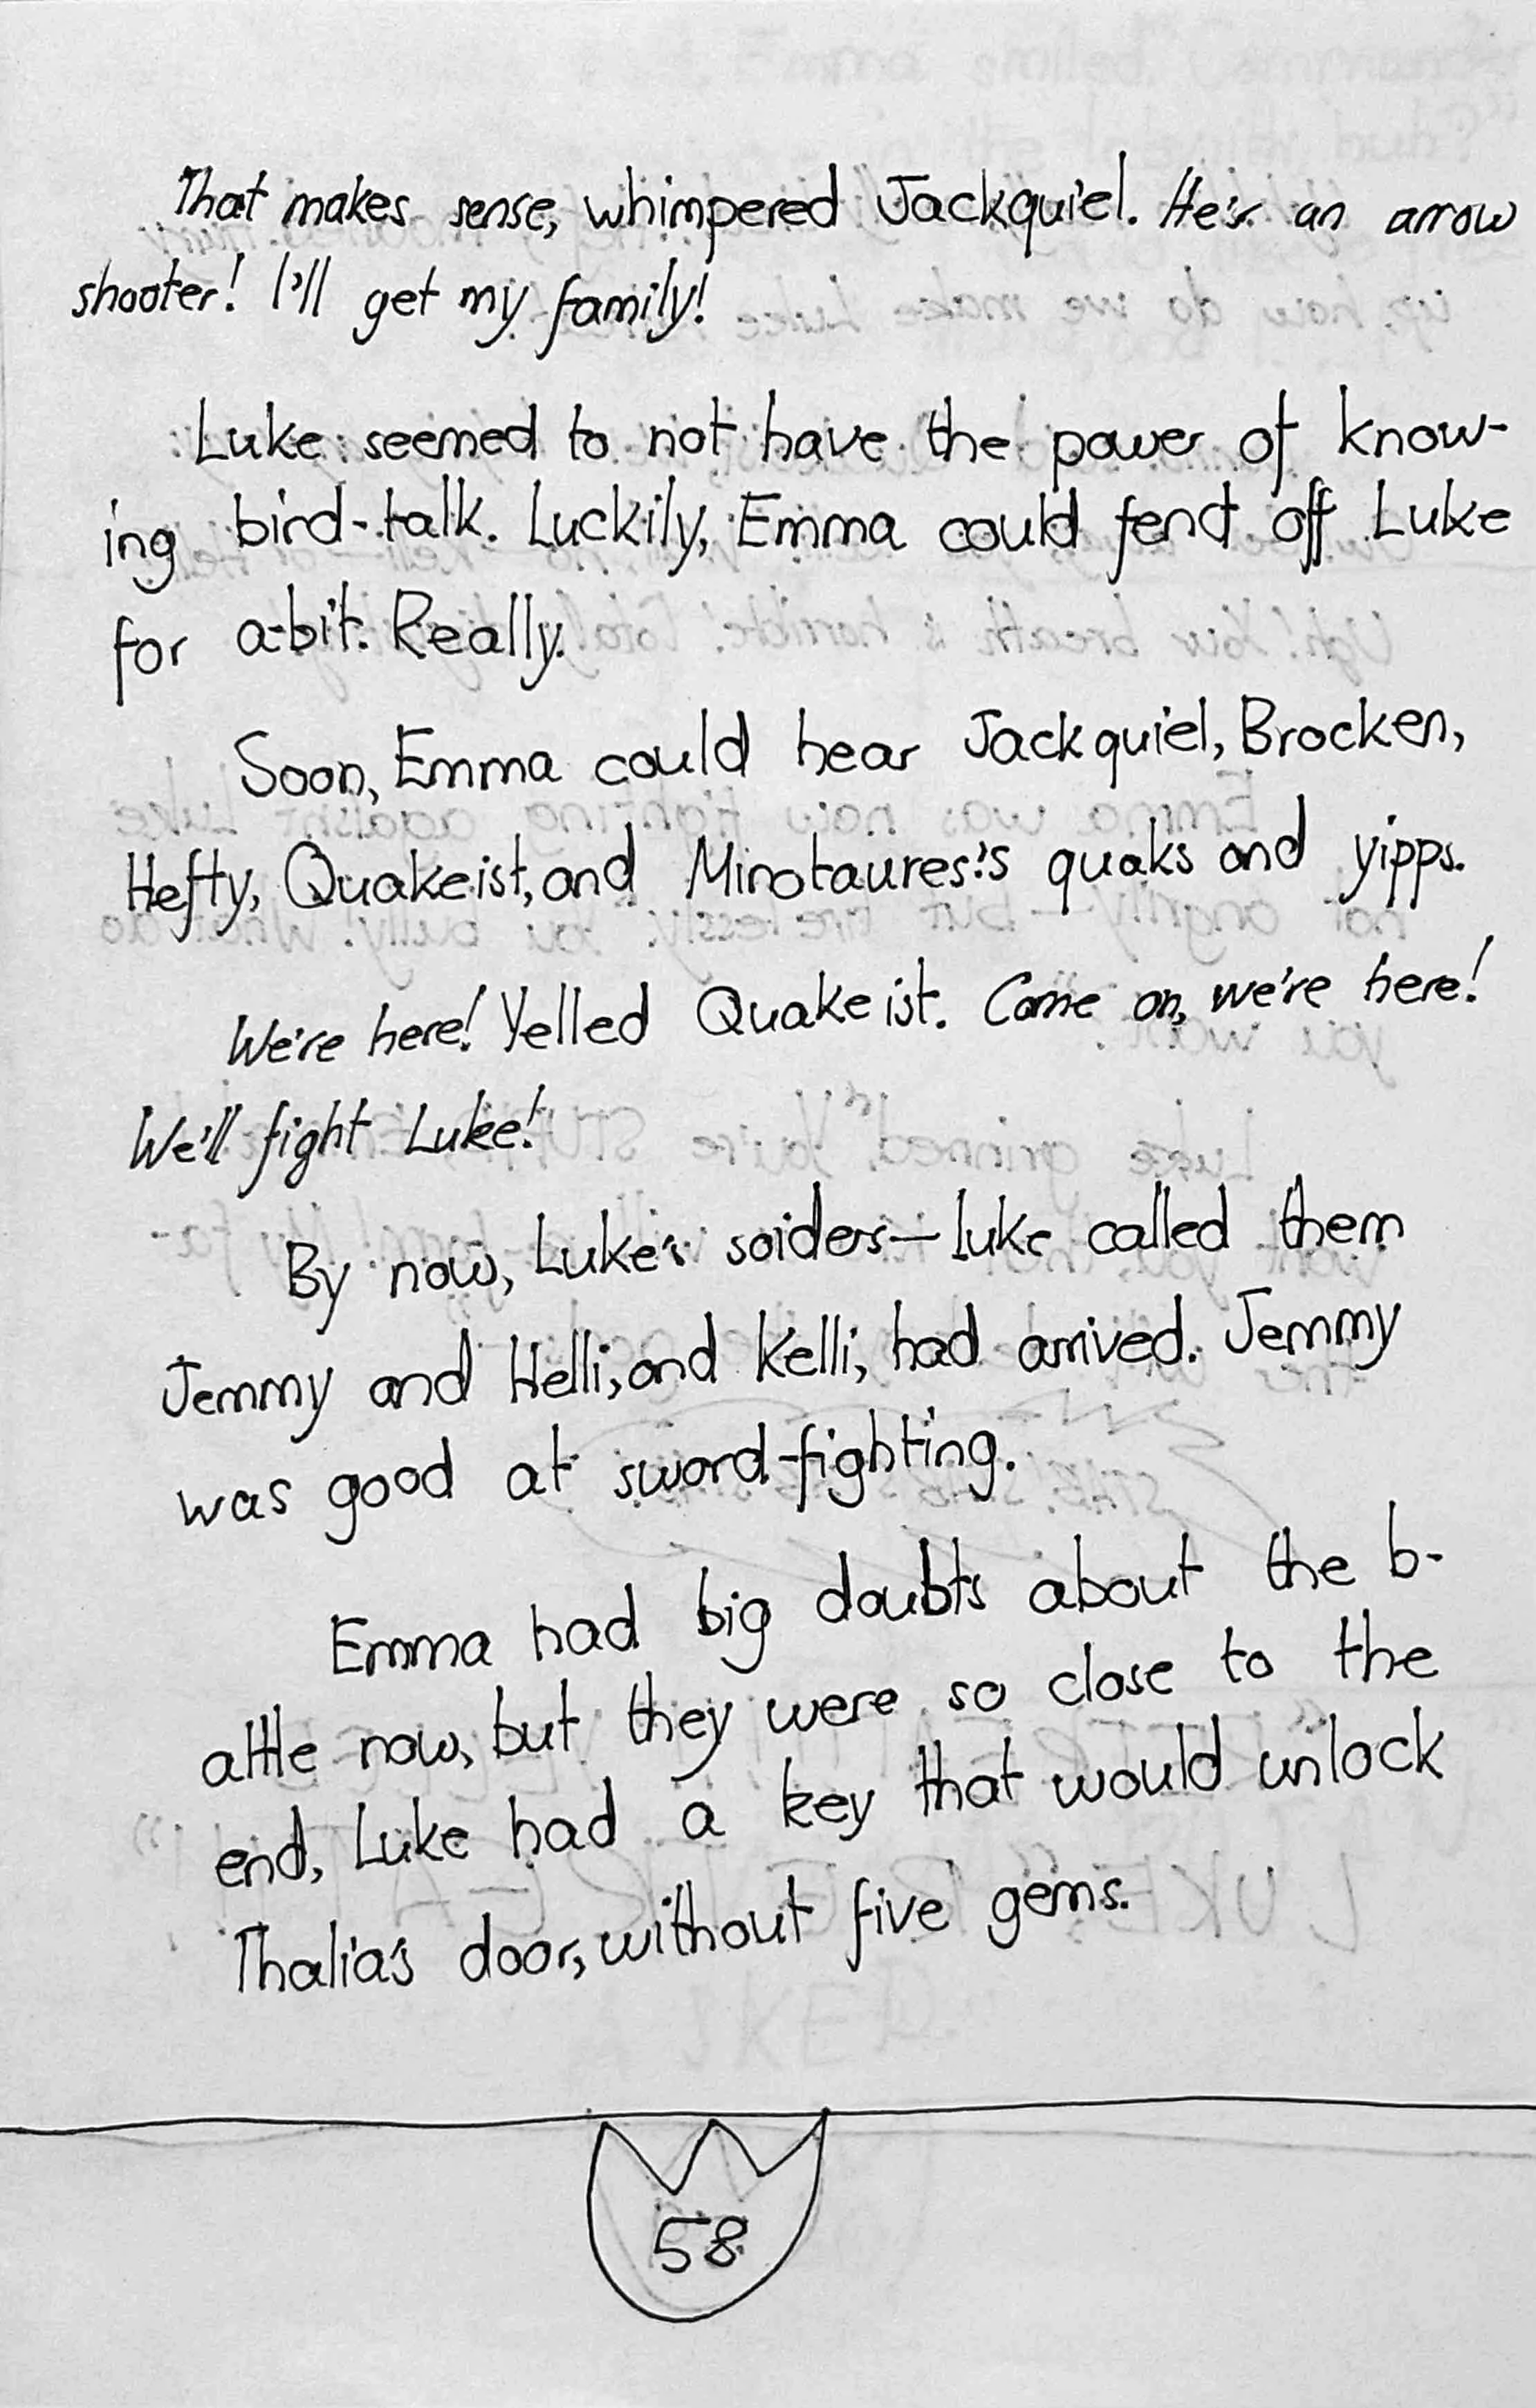 That makes sense, whimpered Jackquiel. He's an arrow
shooter! I'll get my family!
Luke seemed to not have the power of know-
ing bird-talk. Luckily, Emma could fend off Luke
for a-bit. Really.
Soon, Emma could hear Jackquiel, Brocken,
Hefty, Quakeist, and Minotaures's quaks and yipps.
We're here! Yelled Quakeist. Come on, we're here!
We'll fight Luke!
By now, Luke's soiders—luke called them
Jemmy and Helli, and Kelli, had arrived. Jemmy
was good at sword-fighting.
Emma had big doubts about the b-
attle now, but they were so close to the
end, Luke had a key that would unlock
Thalia's door, without five gems.
58